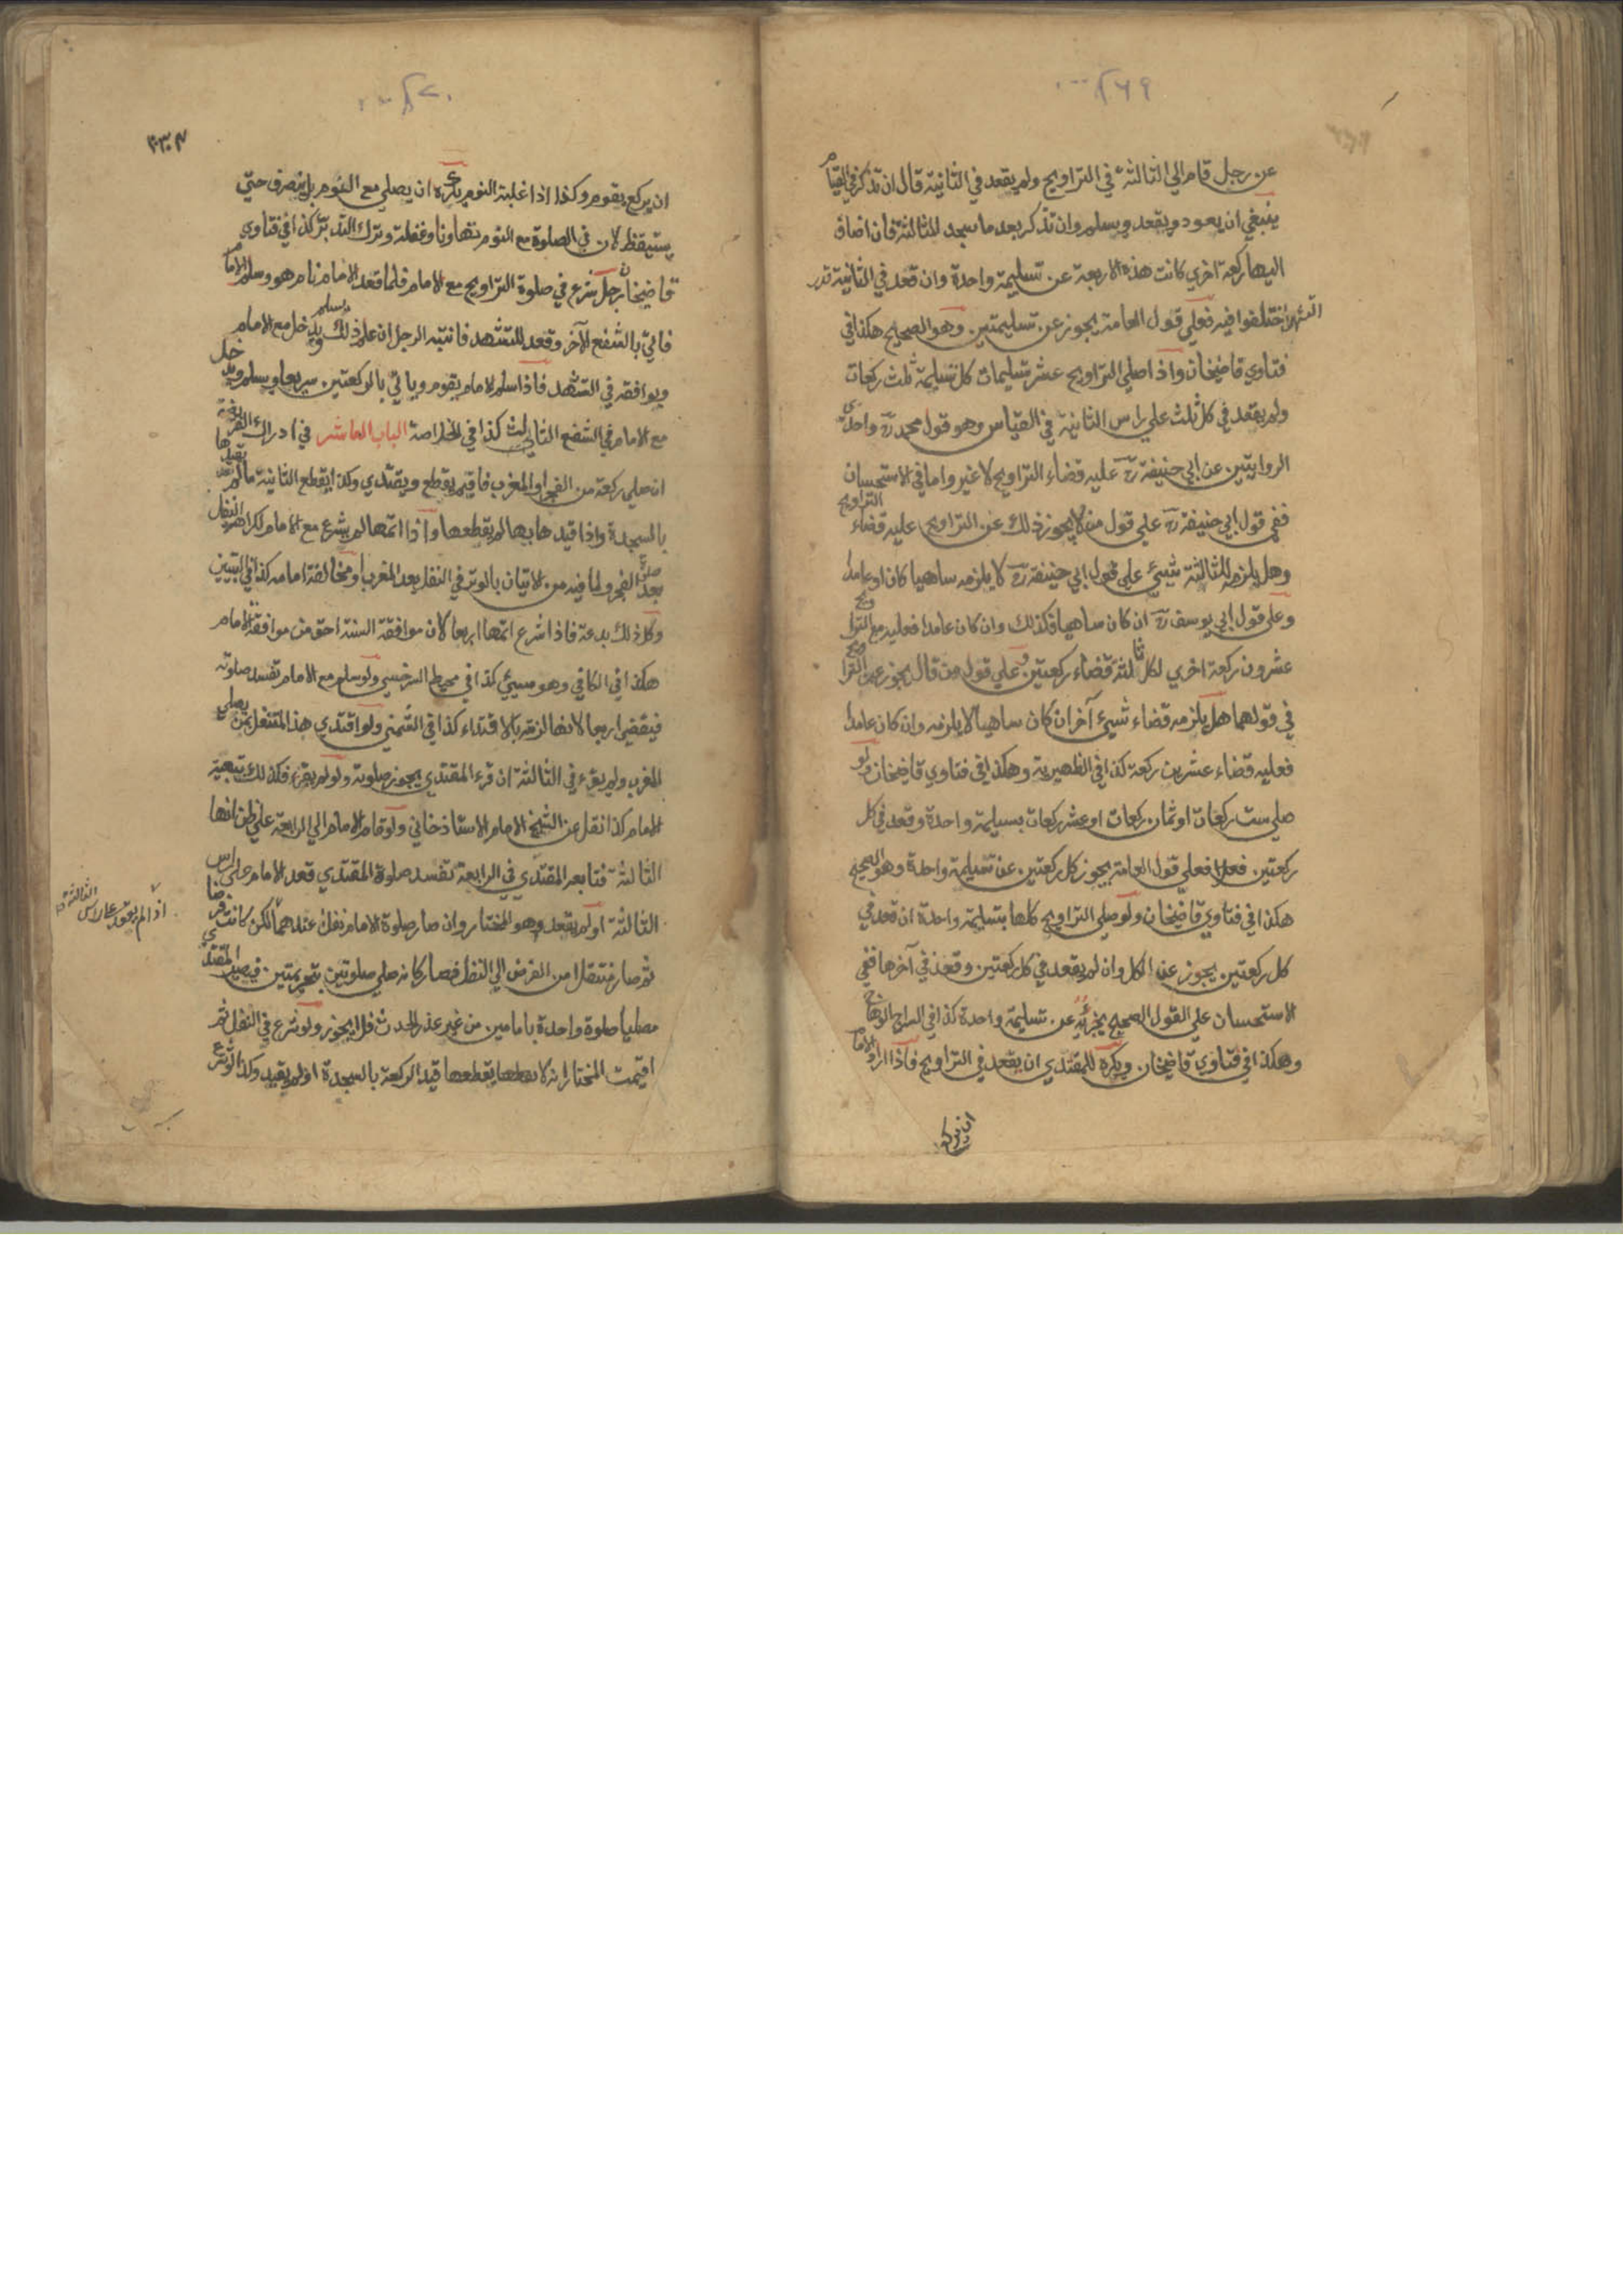 ٢٦٩
عن رجل قام الي الثالثة في التراويح ولم يقعد في الثانية قال ان تذكر في القيام
ينبغي ان يعود ويقعد ويسلم وان تذكر بعد ما سجد للثالثة فان اضاف
اليها ركعة اخري كانت هذه الاربعة عن تسليمة واحدة وان قعد في الثانية قدر
التشهد اختلفوا فيه فعلي قول العامة يجوز عن تسليمتين وهو الصحيح هكذا في
فتاوي قاضيخان واذا صلي التراويح عشر تسليمات كل تسليمة ثلث ركعات
ولم يقعد في كل ثلث علي راس الثانية في القياس وهو قول محمد رح واحدي
الروايتين عن ابي حنيفة رح عليه قضاء التراويح لا غير واما في الاستحسان
ففي قول ابي حنيفة رح علي قول من لا يجوز ذلك عن التراويح عليه قضاء التراويح
وهل يلزمه للثالثة شيئ علي قول ابي حنيفة رح لا يلزمه ساهيا كان او عامدا
وعلي قول ابي يوسف رح ان كان ساهيا فكذلك وان كان عامدا فعليه مع التراويح
عشرون ركعة اخري لكل ثالثة قضاء ركعتين وعلي قول من قال يجوز عن التراويح
في قولهما هل يلزمه قضاء شيئ آخر ان كان ساهيا لا يلزمه وان كان عامدا
فعليه قضاء عشرين ركعة كذا في الظهيرية وهكذا في فتاوي قاضيخان ولو
صلي ست ركعات او ثمان ركعات او عشر ركعات بتسليمة واحدة وقعد في كل
ركعتين فعلي قول العامة يجوز كل ركعتين عن تسليمة واحدة وهو الصحيح
هكذا في فتاوي قاضيخان ولو صلي التراويح كلها بتسليمة واحدة ان قعد في
كل ركعتين يجوز عن الكل وان لم يقعد في كل ركعتين وقعد في آخرها ففي
الاستحسان علي القول الصحيح يجزئه عن تسليمة واحدة كذا في السراج الوهاج
وهكذا في فتاوي قاضيخان ويكره للمقتدي ان يقعد في التراويح فاذا اراد الامام
ان يركع
٢٧٠
ان يركع يقوم وكذا اذا غلبة النوم يكره ان يصلي مع النوم بل ينصرف حتي
يستيقظ لان في الصلوة مع النوم تهاونا وغفلة وترك التدبر كذا في فتاوي
قاضيخان رجل شرع في صلوة التراويح مع الامام فلما قعد الامام نام هو وسلم الامام
فاتي بالشفع الآخر وقعد للتشهد فانتبه الرجل ان علم ذلك يسلم ويدخل مع الامام
ويوافقه في التشهد فاذا سلم الامام يقوم وياتي بالركعتين سريعا ويسلم ويدخل
مع الامام في الشفع الثالث كذا في الخلاصة الباب العاشر في ادراك الفريضة
ان صلي ركعة من الفجر او المغرب فاقيم يقطع ويقتدي وكذا يقطع الثانية ما لم يقيدها
بالسجدة واذا قيدها بها لم يقطعها واذا اتمها لم يشرع مع الامام لكراهة النفل
بعد صلوة الفجر ولما فيه من الاتيان بالوتر في النفل بعد المغرب او مخالفة امامه كذا في التبيين
وكل ذلك بدعة فاذا شرع اتمها اربعا لان موافقة السنة احق من موافقة الامام
هكذا في الكافي وهو مسيئ كذا في محيط السرخسي ولو سلم مع الامام تفسد صلوته
فيقضي اربعا لانها لزمته بالاقتداء كذا في الشمني ولو اقتدي هذا المتنفل بمن يصلي
المغرب ولم يقرء في الثالثة ان قرء المقتدي يجوز صلوته ولو لم يقرء فكذلك تبعية
للامام كذا نقل عن الشيخ الامام الاستاذ خاني ولو قام الامام الي الرابعة علي ظن انها
الثالثة فتابعه المقتدي في الرابعة تفسد صلوة المقتدي قعد الامام علي راس
الثالثة او لم يقعد وهو المختار وان صار صلوة الامام نفلا عندهما لكن كانت فرضا
ثم صار منتقلا من الفرض الي النفل فصار كانه صلي صلوتين بتحريمتين فيصير المقتدي
مصليا صلوة واحدة بامامين من غير عذر الحدث فلا يجوز ولو شرع في النفل ثم
اقيمت المختار انه لا يقطعها قيد الركعة بالسجدة او لم يقيد وكذا لو شرع